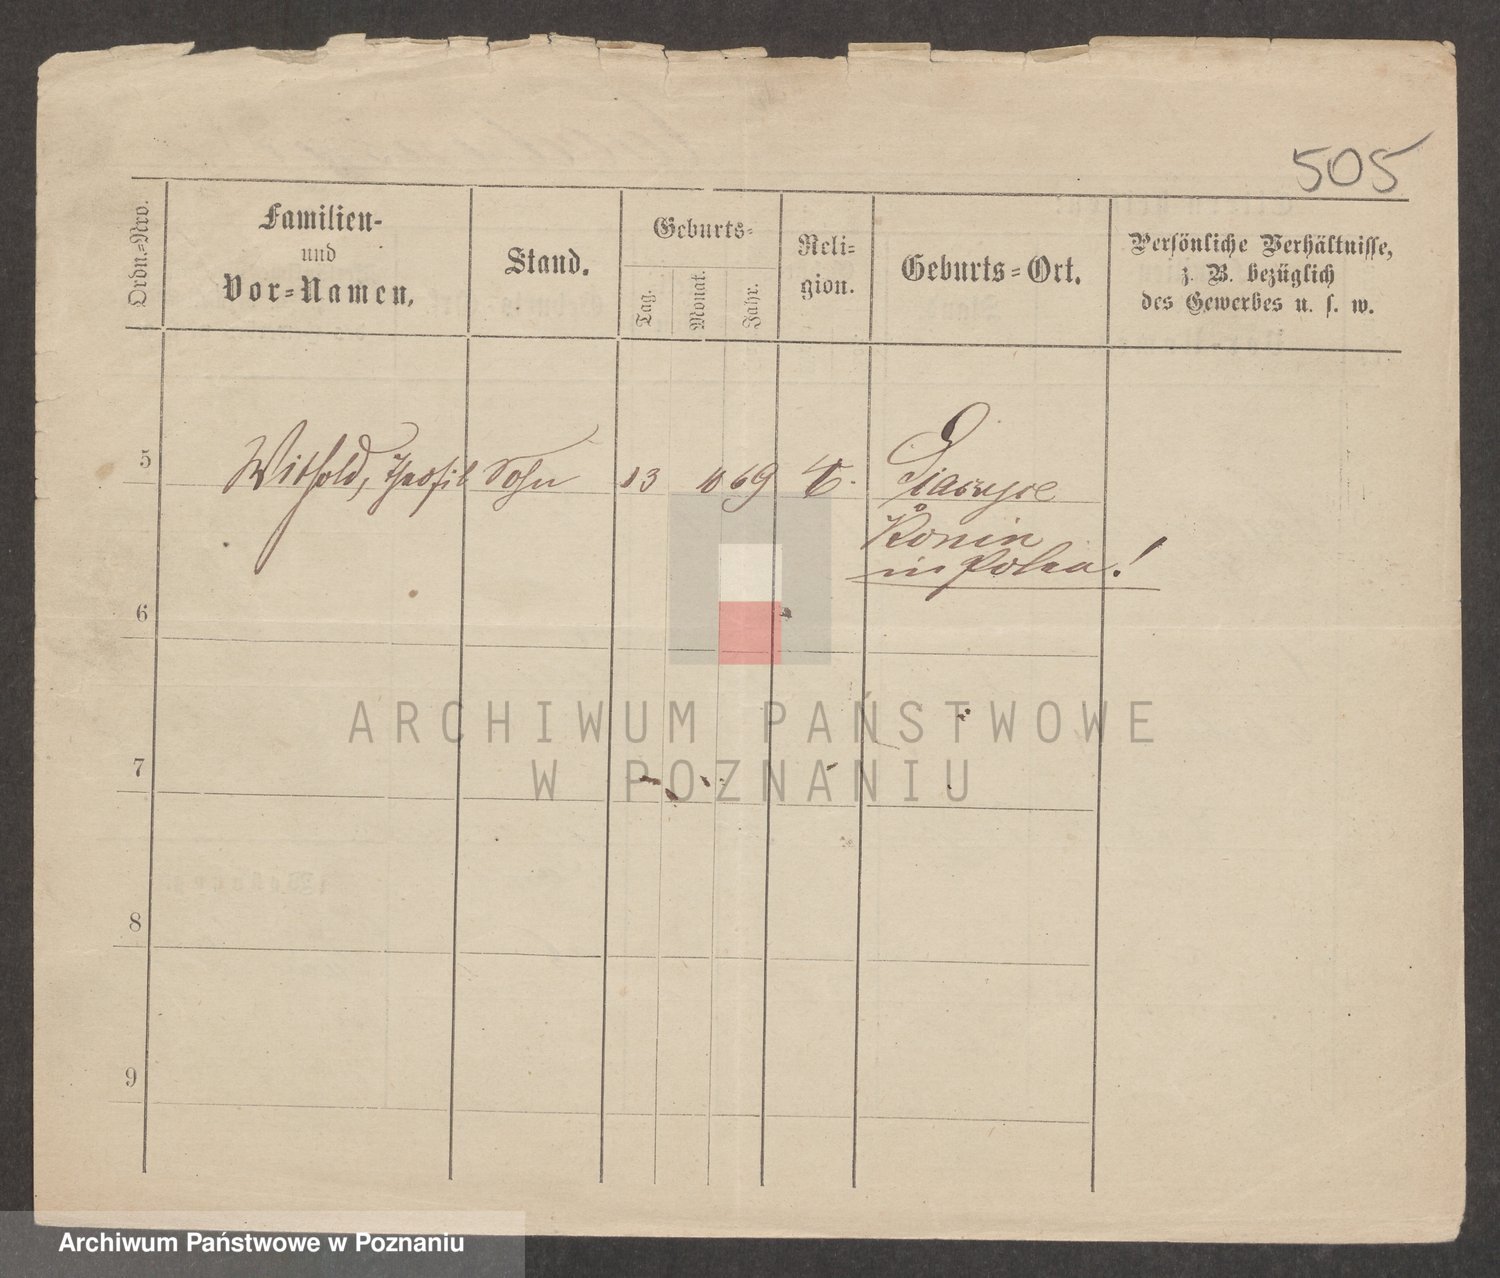 505
Ordn.-Nro.
Familien-
und
Vor-Namen.
Stand.
Geburts-
Tag.
Monat.
Jahr.
Reli-
gion.
Geburts-Ort.
Persönliche Verhältnisse,
z. B. bezüglich
des Gewerbes u. s. w.
5 Withold, Theofil Sohn 13 10 69
Konin
in Polen!
6
7
8
9
ARCHIWUM PAŃSTWOWE
W POZNANIU
Archiwum Państwowe w Poznaniu